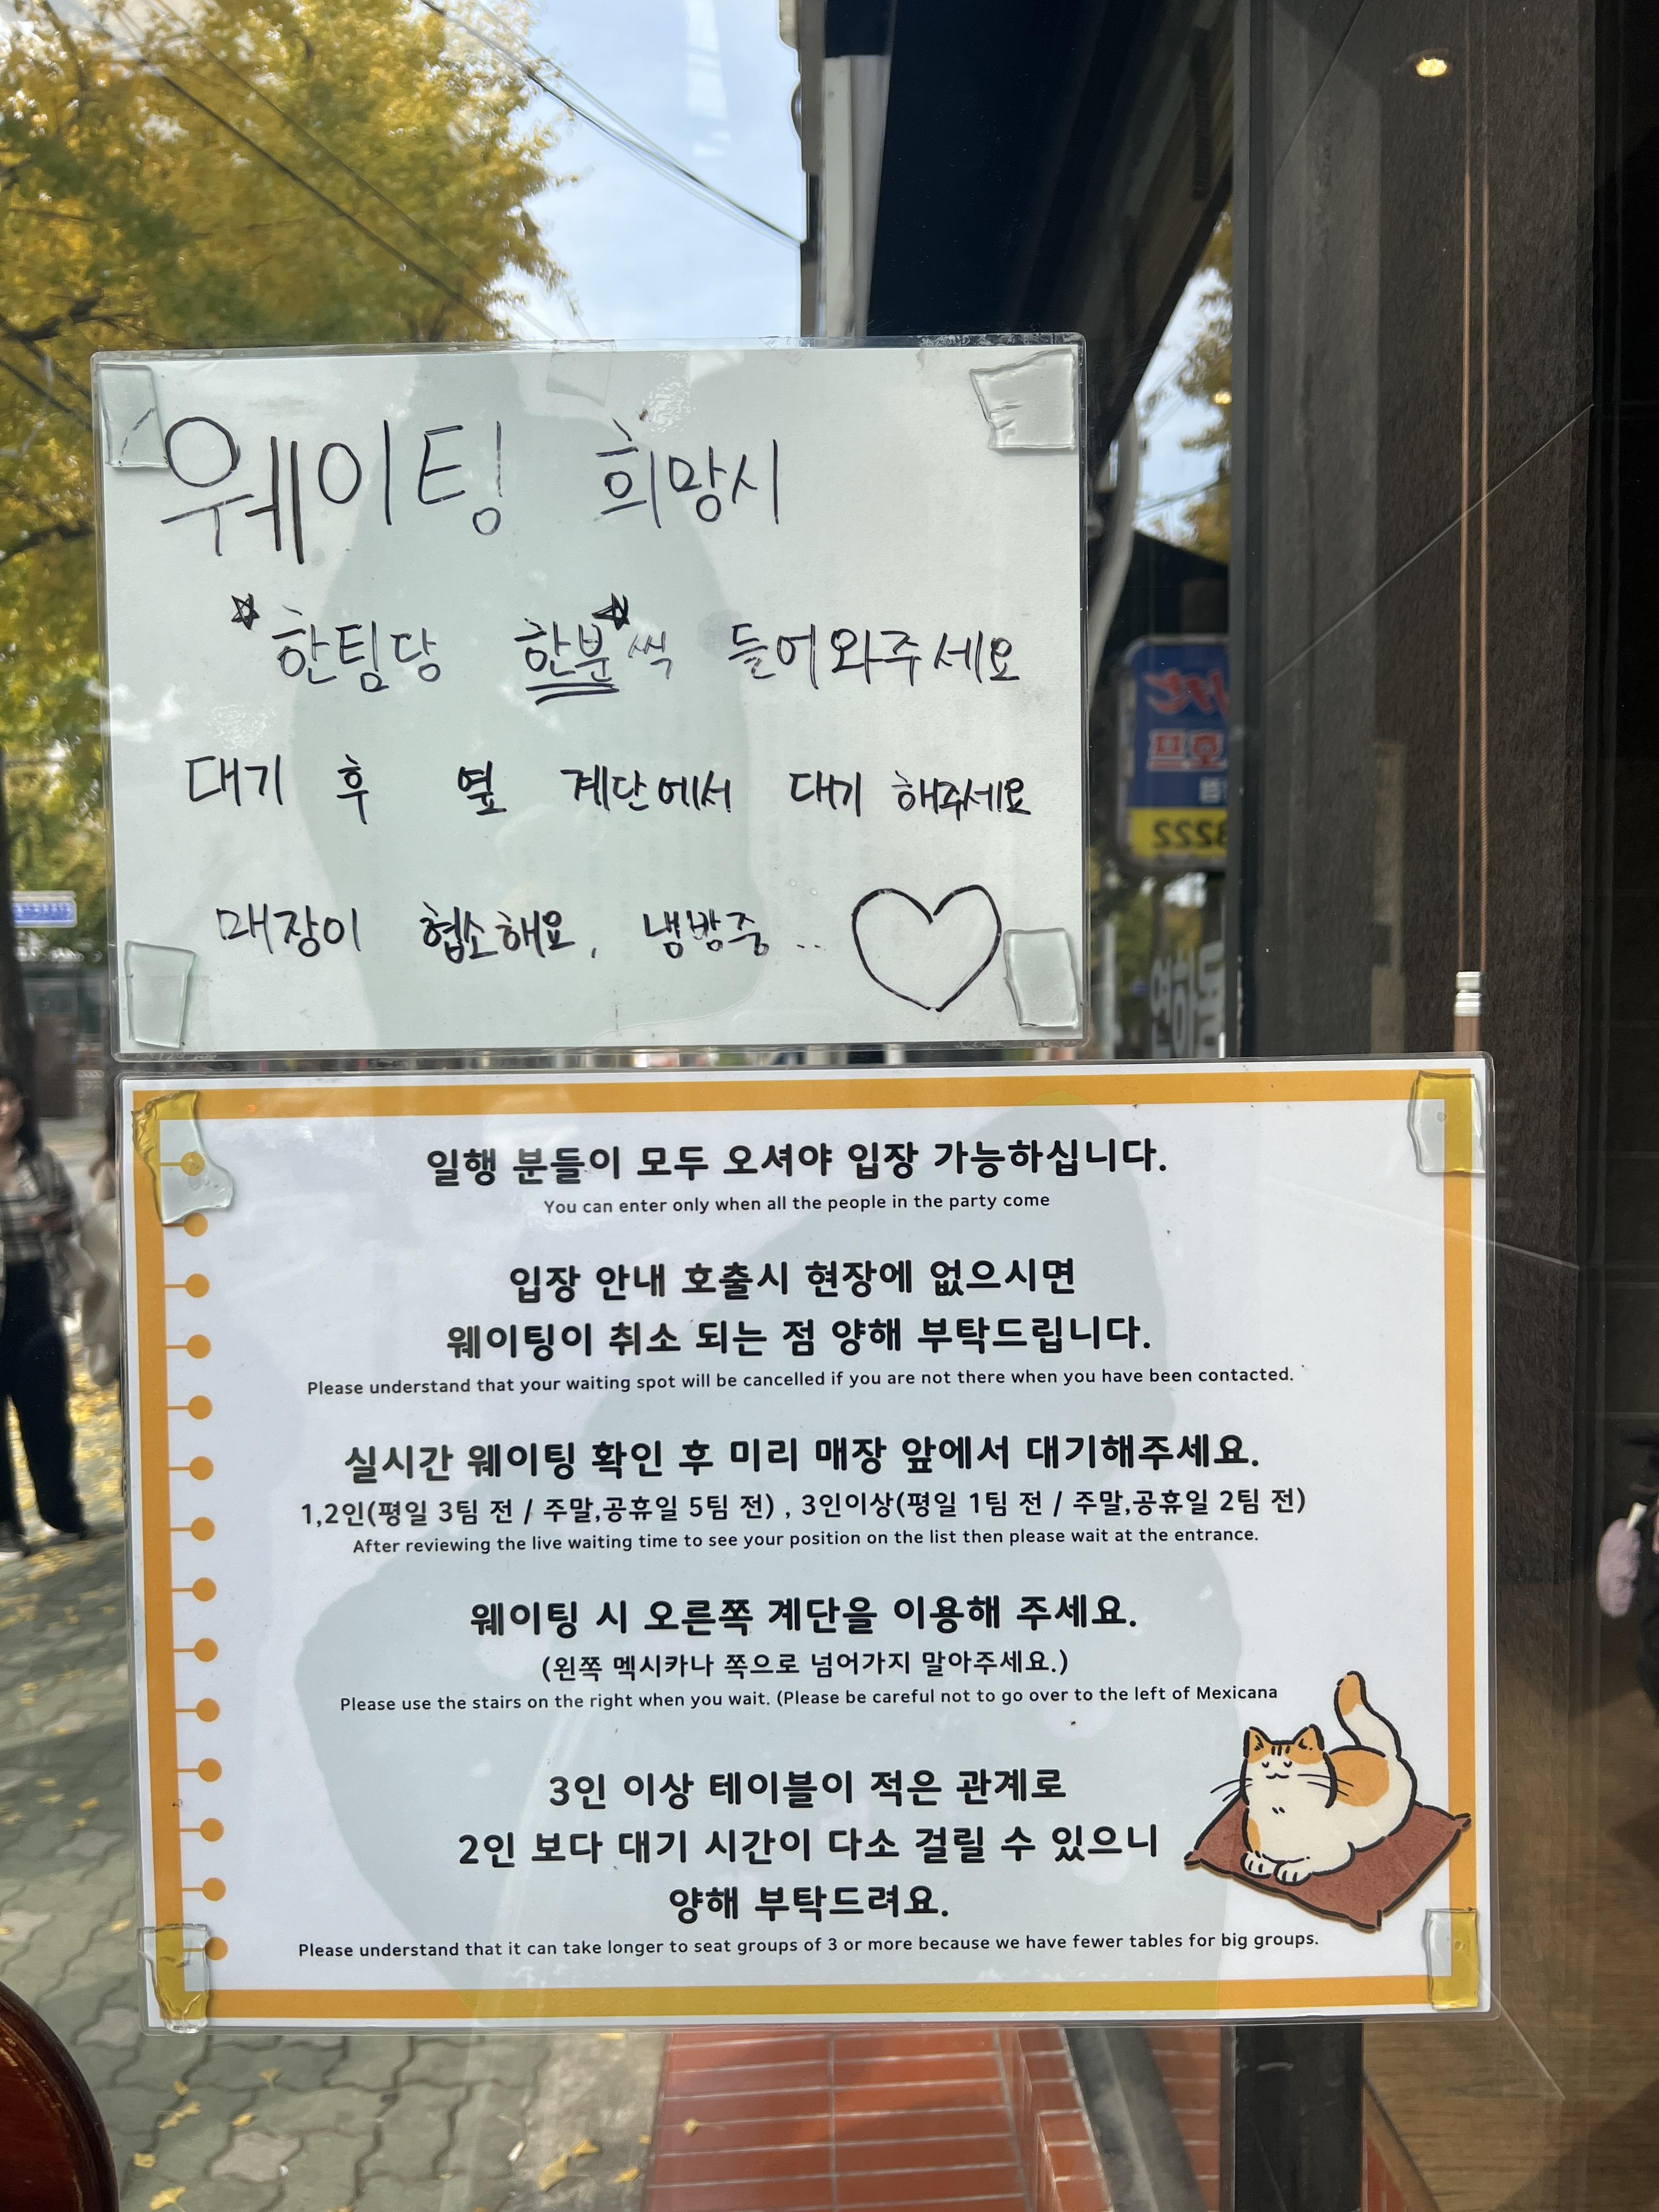 웨이팅 희망시
한팀당 한분씩 들어와주세요
대기 후 옆 계단에서 대기 해주세요
매장이 협소해요, 냉방중..
일행 분들이 모두 오셔야 입장 가능하십니다.
You can enter only when all the people in the party come
입장 안내 호출시 현장에 없으시면
웨이팅이 취소 되는 점 양해 부탁드립니다.
Please understand that your waiting spot will be cancelled if you are not there when you have been contacted.
실시간 웨이팅 확인 후 미리 매장 앞에서 대기해주세요.
1,2인(평일 3팀 전 / 주말,공휴일 5팀 전) , 3인이상(평일 1팀 전 / 주말,공휴일 2팀 전)
After reviewing the live waiting time to see your position on the list then please wait at the entrance.
웨이팅 시 오른쪽 계단을 이용해 주세요.
(왼쪽 멕시카나 쪽으로 넘어가지 말아주세요.)
Please use the stairs on the right when you wait. (Please be careful not to go over to the left of Mexicana
3인 이상 테이블이 적은 관계로
2인 보다 대기 시간이 다소 걸릴 수 있으니
양해 부탁드려요.
Please understand that it can take longer to seat groups of 3 or more because we have fewer tables for big groups.